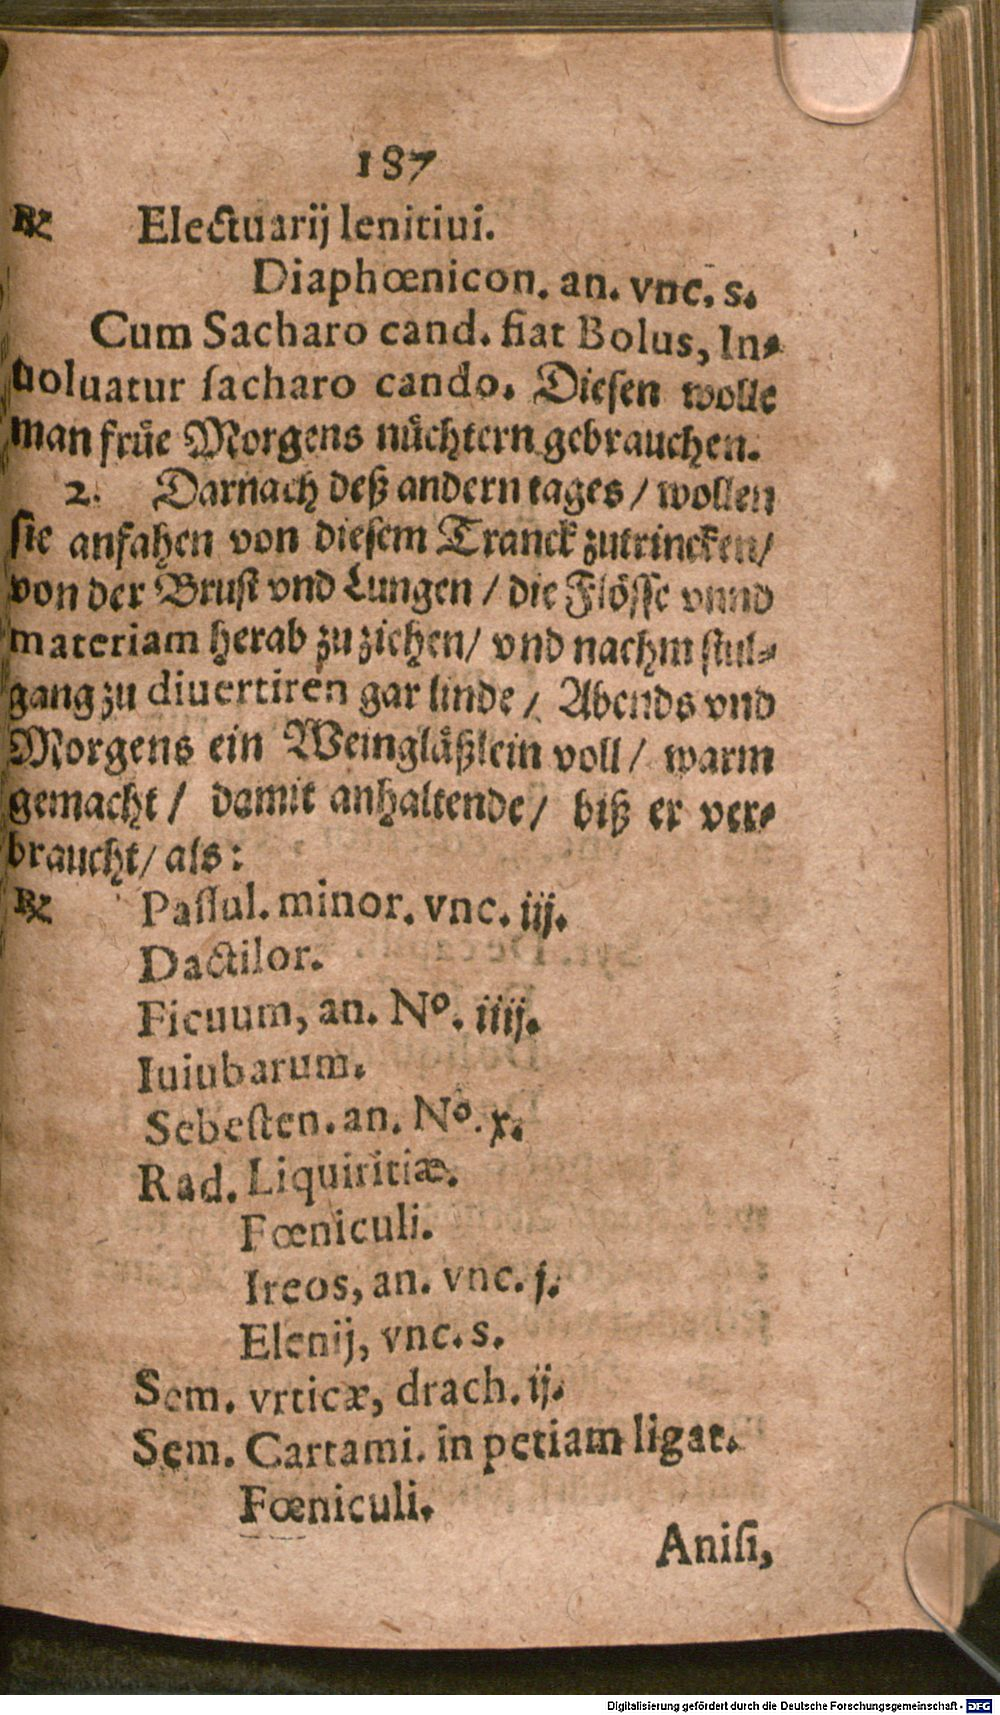 187
℞ Electuarij lenitiui.
Diaphœnicon. an. vnc. s.
Cum Sacharo cand. fiat Bolus, In-
uoluatur ſacharo cando. Dieſen wolle
man frůe Morgens nůchtern gebrauchen.
2. Darnach deß andern tages / wollen
ſie anfahen von dieſem Tranck zutrincken /
von der Bruſt vnd Lungen / die Flöſſe vnnd
materiam herab zu ziehen / vnd nachm ſtul-
gang zu diuertiren gar linde / Abends vnd
Morgens ein Weingläßlein voll / warm
gemacht / damit anhaltende / biß er ver-
braucht / als:
℞ Paſſul. minor. vnc. iij.
Dactilor.
Ficuum, an. Nº. iiij.
Iuiubarum.
Sebeſten. an. Nº. x.
Rad. Liquiritiæ.
Fœniculi.
Ireos, an. vnc. j.
Elenij, vnc. s.
Sem. vrticæ, drach. ij.
Sem. Cartami. in petiam ligat.
Fœniculi.
Aniſi,
Digitalisierung gefördert durch die Deutsche Forschungsgemeinschaft - DFG